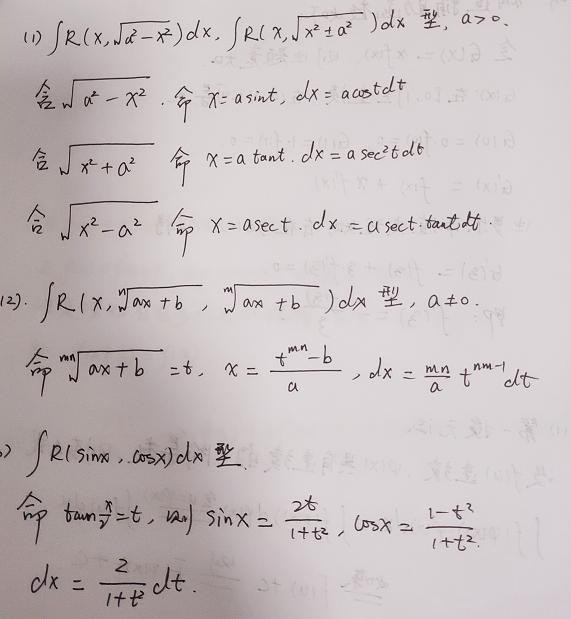 (1) ∫R(x,√(a²-x²))dx, ∫R(x,√(x²±a²))dx 型, a>0.
含√(a²-x²). 命 x=asint, dx=acostdt
含√(x²+a²) 命 x=a tant. dx=a sec²t dt
含√(x²-a²) 命 x=asect. dx=a sect·tantdt.
(2). ∫R(x, ⁿ√(ax+b), ᵐ√(ax+b))dx 型, a≠0.
命 ᵐⁿ√(ax+b) =t, x=(t^{mn}-b)/a, dx=(mn/a) t^{nm-1}dt
) ∫R(sinx, cosx)dx 型.
命 tan(x/2)=t, 则 sinx=2t/(1+t²), cosx=(1-t²)/(1+t²).
dx=(2/(1+t²))dt.